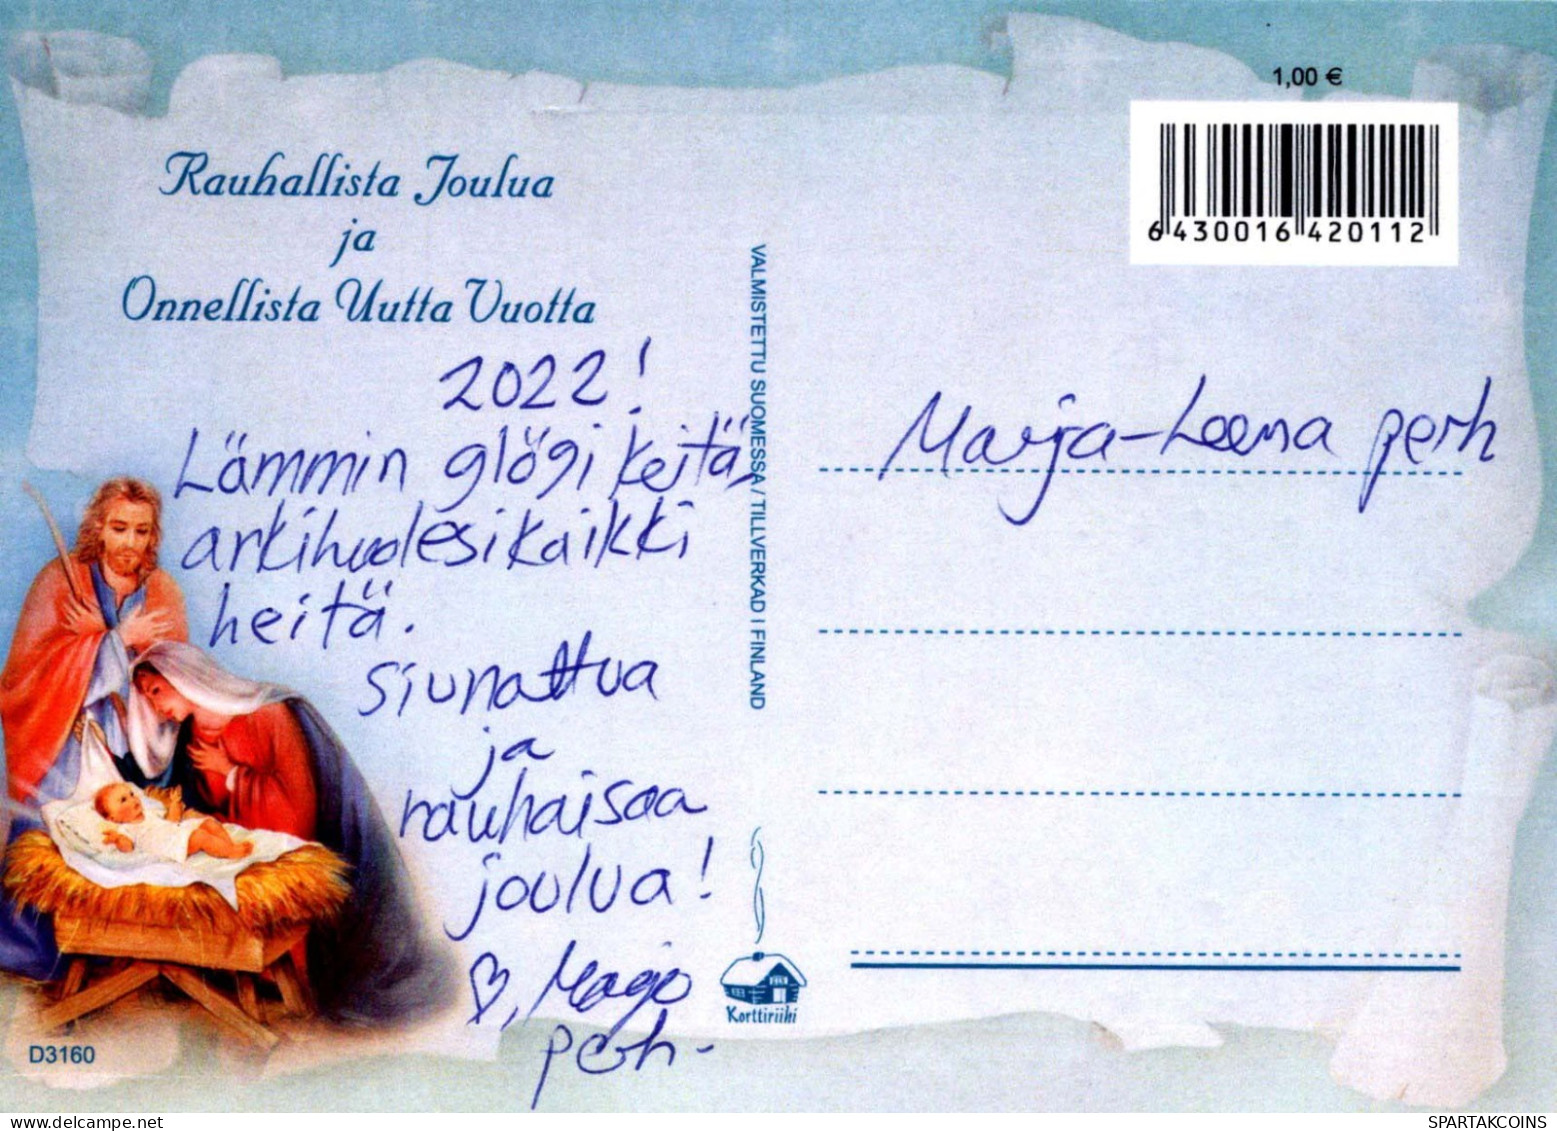 Rauhallista Joulua
ja
Onnellista Uutta Vuotta
2022!
Lämmin glögi keitä,
arkihuolesi kaikki
heitä.
siunattua
ja
rauhaisaa
joulua!
♡, Marjo
perh-
D3160
VALMISTETTU SUOMESSA / TILLVERKAD I FINLAND
Korttiriihi
1,00 €
6 430016 420112
Marja-Leena perh
SPARTAKCOINS